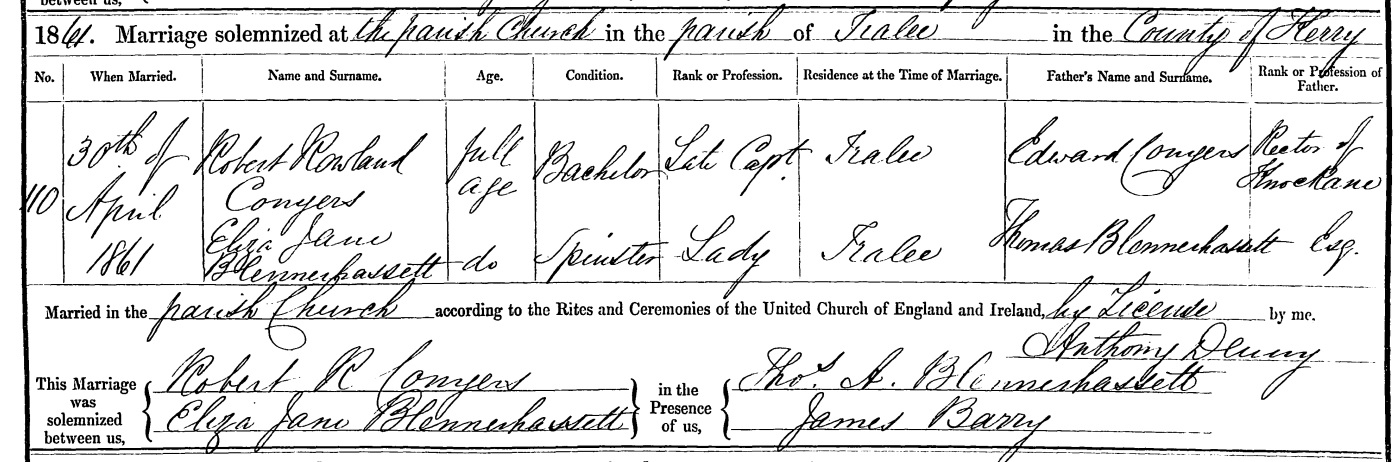 between us,
1861. Marriage solemnized at the parish Church in the parish of Tralee in the County of Kerry
No. When Married. Name and Surname. Age. Condition. Rank or Profession. Residence at the Time of Marriage. Father's Name and Surname. Rank or Profession of Father.
110 30th of April 1861 Robert Rowland Conyers full age Bachelor Late Capt. Tralee Edward Conyers Rector of Knockane
Eliza Jane Blennerhassett do Spinster Lady Tralee Thomas Blennerhassett Esq.
Married in the parish Church according to the Rites and Ceremonies of the United Church of England and Ireland, by License by me,
Anthony Denny
This Marriage was solemnized between us, Robert R Conyers
Eliza Jane Blennerhassett
in the Presence of us, Thos. A. Blennerhassett
James Barry